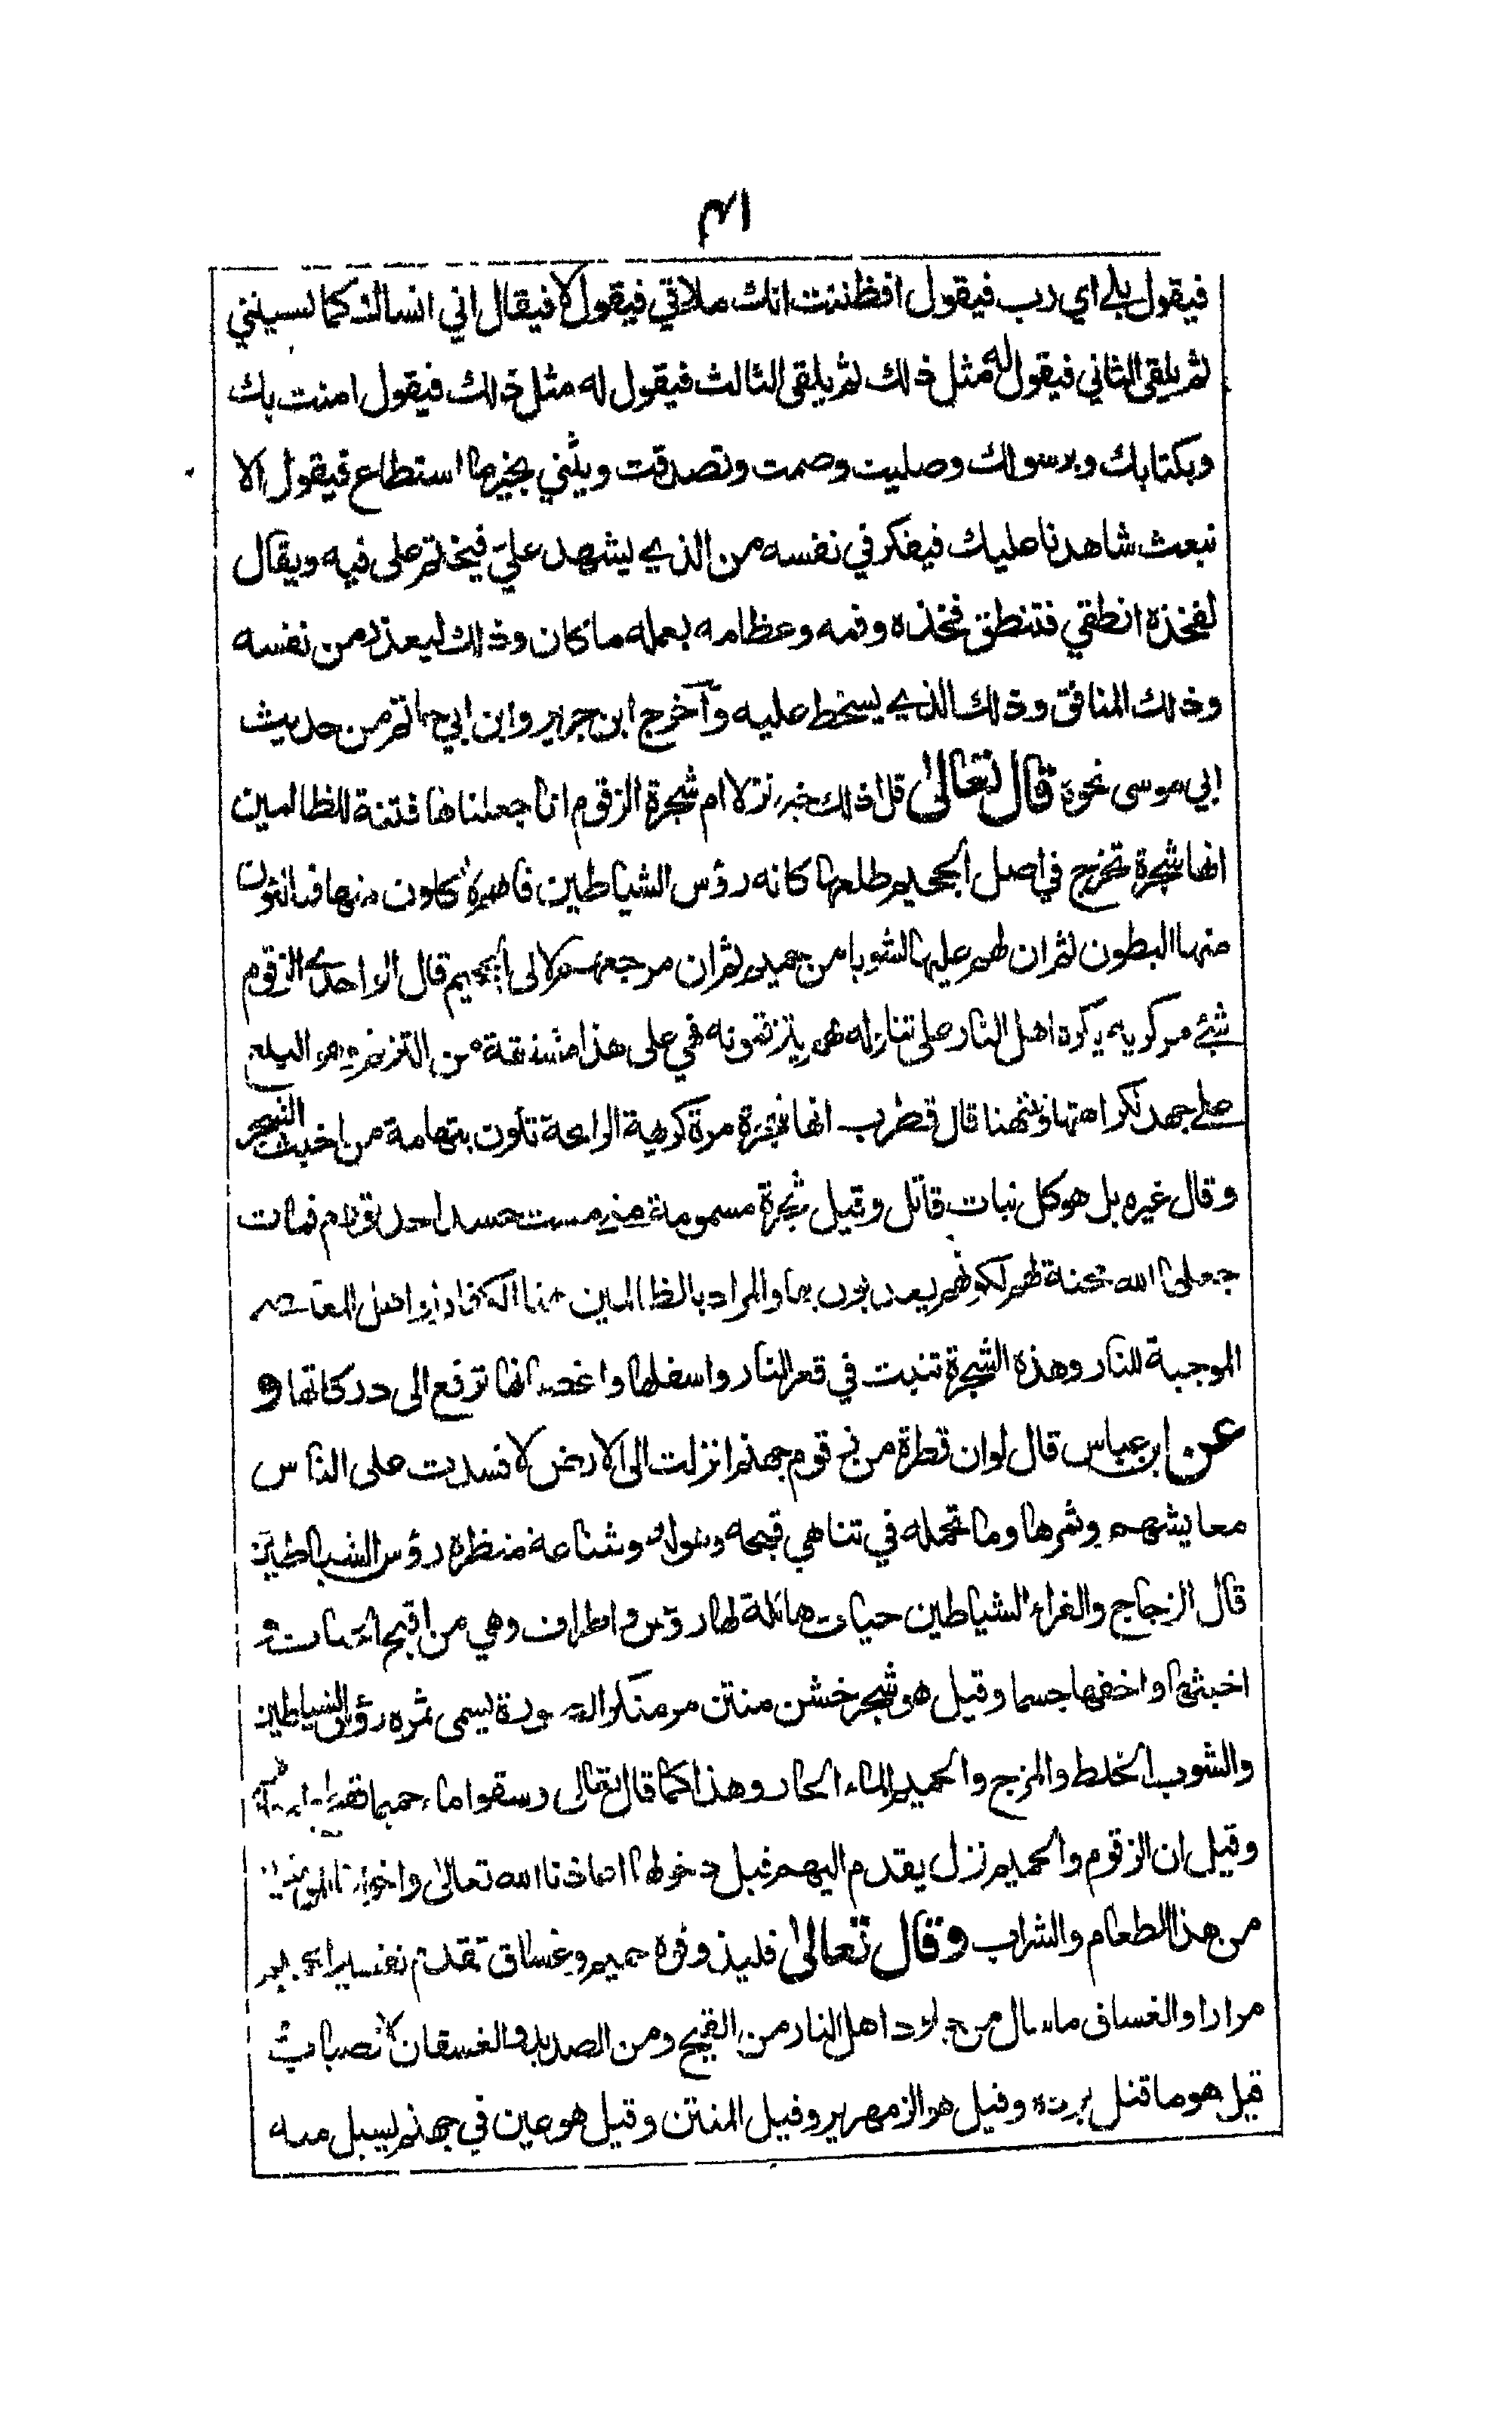 ٣١
فيقول بلے اي رب فيقول افظننت انك ملاقي فيقول لا فيقال اني انساك كما نسيتني
ثم يلقى الثاني فيقول له مثل ذلك ثم يلقى الثالث فيقول له مثل ذلك فيقول امنت بك
وبكتابك وبرسولك وصليت وصمت وتصدقت ويثني بخير ما استطاع فيقول الا
نبعث شاهدنا عليك فيفكر في نفسه من الذي يشهد عليّ فيختم على فيه ويقال
لفخذه انطقي فتنطق فخذه وفمه وعظامه بعمله ما كان وذلك ليعذر من نفسه
وذلك المنافق وذلك الذي يسخط عليه وآخرج ابن جرير وابن ابي حاتم من حديث
ابي موسى نحوه قال تعالى قل اذلك خير نزلا ام شجرة الزقوم انا جعلناها فتنة للظالمين
انها شجرة تخرج في اصل الجحيم طلعها كانه رؤس الشياطين فانهم لاكلون منها فمالئون
منها البطون ثم ان لهم عليها لشوبا من حميم ثم ان مرجعهم لا لى الجحيم قال الواحدي الزقوم
شيء مر كريه يكره اهل النار على تناوله فهم يتزقمونه فهي على هذا مشتقة من التزقم وهو البلع
على جهد لكراهتها ونتنها قال قطرب انها شجرة مرة كريهة الرائحة تكون بتهامة من اخبث الشجر
وقال غيره بل هو كل نبات قاتل وقيل شجرة مسمومة متى مست جسد احد تورم فمات
جعلها الله محنة لهم لكونهم يعذبون بها والمراد بالظالمين هنا الكفار او اهل المعاصي
الموجبة للنار وهذه الشجرة تنبت في قعر النار واسفلها واغصانها ترفع الى دركاتها و
عن ابن عباس قال لو ان قطرة من زقوم جهنم انزلت الى الارض لافسدت على الناس
معايشهم وثمرها وما تحمله في تناهي قبحه وهوله وشناعة منظره رؤس الشياطين
قال الزجاج والفراء الشياطين حيات هائلة لها رؤس واطراف وهي من اقبح الحيات و
اخبثها واخفها جسما وقيل هو شجر خشن منتن مر منكر الصورة يسمى ثمره رؤس الشياطين
والشوب الخلط والمزج والحميم الماء الحار وهذا كما قال تعالى وسقوا ماء حميما فقطع
وقيل ان الزقوم والحميم نزل يقدم اليهم قبل دخولها اعاذنا الله تعالى واخواننا المؤمنين
من هذا الطعام والشراب وقال تعالى فليذوقوه حميم وغساق تقدم تفسير الحميم
مرارا والغساق ما سال من جلود اهل النار من القيح ومن الصديد والغسقان الانصباب
قيل هو ما قتل ببرده وقيل هو الزمهرير وقيل المنتن وقيل هو عين في جهنم يسيل منه